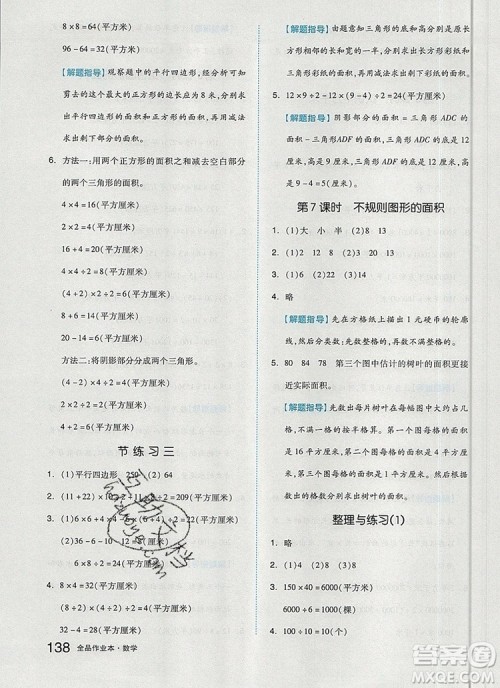 8 × 8 = 64(平方厘米)
96 - 64 = 32(平方厘米)
【解题指导】 观察题中的平行四边形,可知
剪去的这个最大的正方形的边长应为8厘米,
用平行四边形的面积减正方形的面积,可
求出剩下部分的面积。
6. 方法一:用两个正方形的面积之和减去空白部分
的两个三角形的面积。
4 × 4 = 16(平方厘米)
2 × 2 = 4(平方厘米)
16 + 4 = 20(平方厘米)
4 × 4 ÷ 2 = 8(平方厘米)
(4 + 2) × 2 ÷ 2 = 6(平方厘米)
20 - 8 - 6 = 6(平方厘米)
方法二:将阴影部分分成两个三角形。
(4 - 2) × 4 ÷ 2 = 4(平方厘米)
(4 - 2) × 2 ÷ 2 = 2(平方厘米)
4 + 2 = 6(平方厘米)
节 练 习 三
1. (1)平行四边形 250 (2)64
2. (11 + 22) × 2 + 11 × 2 = 209(平方厘米)
(2)36 - 2 - 4 - 6
6 × 8 ÷ 2 = 24(平方厘米)
4. 8 × 4 = 32(平方厘米)
8 × 4 ÷ 2 = 16(平方厘米)
32 - 4 = 28(平方厘米)
138 全品作业本·数学
【解题指导】 由题意知三角形的底和高分别是
长方形彩纸的宽和长,根据长方形和三角形的面
积公式,分别列式求出长方形彩纸和三角形彩纸
的面积。
6. 12 × 9 ÷ 2 - 12 = 42(平方厘米)
【解题指导】 阴影部分的面积 = 三角形 ADC 的面
积 - 三角形 ADF 的面积,三角形 ADC 的底是 12 厘
米,高是 9 厘米,三角形 ADF 的面积是 12 平方厘米。
第 7 课时 不规则图形的面积
1. (1)大 小 半 (2)8 13
2. (1)33 (2)20 (3)18 (4)13
3. 略
4. 略
【解题指导】 先在方格纸上描出 1 元硬币的轮廓
线,然后分整格、不满整格数一数。
5. 80 84 78 第三个图中估计的树叶的面积更接
近实际面积。
【解题指导】 先数出每片树叶在每幅图中占多少
个方格,第一幅图中每个方格的面积是
16 平方厘米,第二幅图中每个方格的面积是
4 平方厘米,第三幅图中每个方格的面积是
1 平方厘米。
整理与练习(1)
1. 略
2. 150 × 40 = 6000(平方米)
6000 ÷ 1 = 6000(棵)
4. 100 ÷ 10 = 10(平方米)
答案圈
MXQE.COM